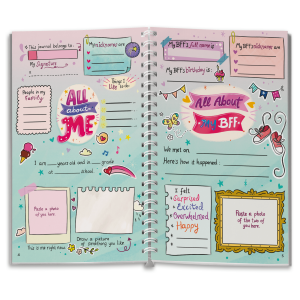 This journal belongs to
My Signature
My nicknames are
People in my
Family:
Things I
like to do
All
about
ME
I am years old and in grade
at school.
Paste a photo
of you here.
This is me right now
Draw a picture
of something you like
My BFF's full name is
My BFF's nicknames are
My BFF's birthday is:
All About
My BFF
We met on
Here's how it happened
I felt
Surprised
Excited
Overwhelmed
Happy
Paste a photo
of the two of
you here.